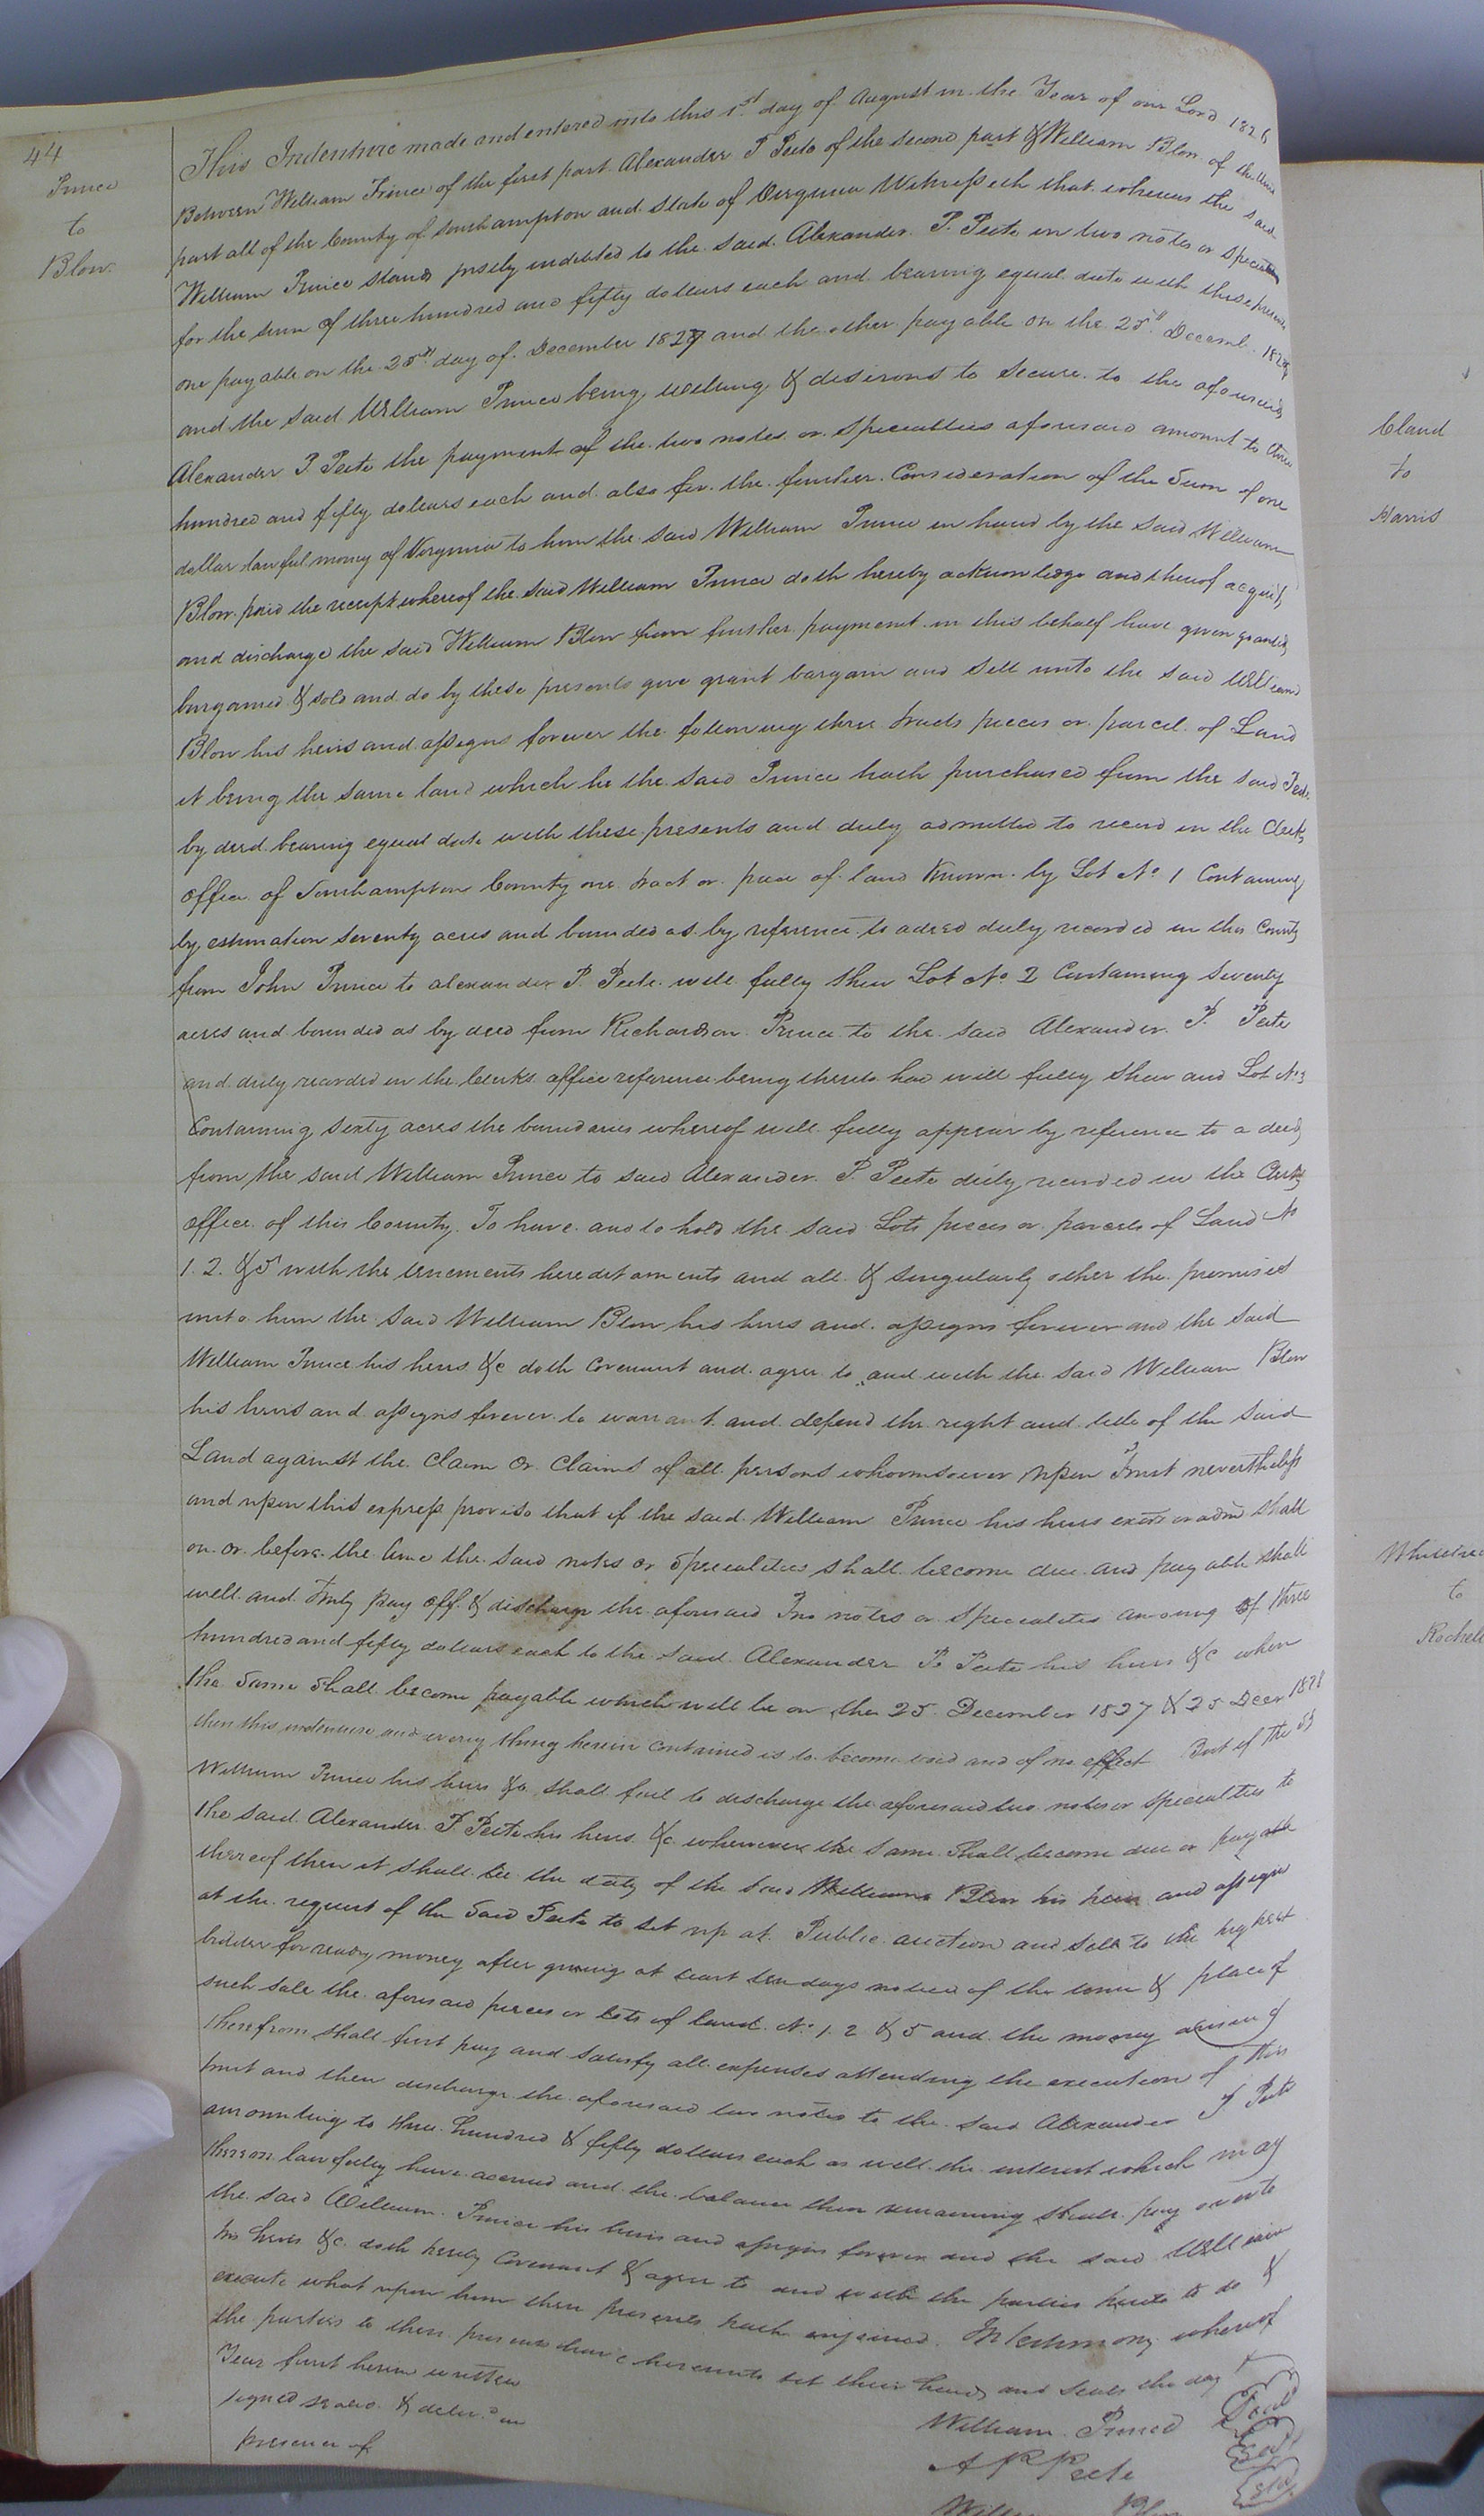 44
Prince
to
Blow
This Indenture made and entered into this 1st day of August in the Year of our Lord 1826
Between William Prince of the first part Alexander P Peete of the second part & William Blow of the third
part all of the County of Southampton and State of Virginia Witnesseth that whereas the said
William Prince stands justly indebted to the said Alexander P. Peete in two notes or specialties
for the sum of three hundred and fifty dollars each and bearing equal date with these presents
one payable on the 25th day of December 1827 and the other payable on the 25th Decemb. 1828
and the said William Prince being willing & desirous to secure to the aforesaid
Alexander P. Peete the payment of the two notes or specialties aforesaid amount to three
hundred and fifty dollars each and also for the further Consideration of the Sum of one
dollar lawful money of Virginia to him the said William Prince in hand by the said William
Blow paid the receipt whereof the said William Prince doth hereby acknowledge and thereof acquit
and discharge the said William Blow from further payment in this behalf have given granted
bargained & sold and do by these presents give grant bargain and sell unto the said William
Blow his heirs and assigns forever the following three tracts pieces or parcel of Land
it being the same land which he the said Prince hath purchased from the said Peete
by deed bearing equal date with these presents and duly admitted to record in the Clerks
office of Southampton County one tract or piece of land Known by Lot No. 1 Containing
by estimation seventy acres and bounded as by reference to a deed duly recorded in this County
from John Prince to alexander P. Peete will fully shew Lot No 2 Containing Seventy
acres and bounded as by deed from Richardson Prince to the said Alexander P. Peete
and duly recorded in the Clerks office reference being thereto had will fully shew and Lot No 5
Containing sixty acres the boundaries whereof will fully appear by reference to a deed
from the said William Prince to said Alexander P. Peete duly recorded in the Clerks
office of this County. To have and to hold the said Lots pieces or parcels of Land No
1. 2. & 5 with the tenements hereditaments and all & singularly other the premises
unto him the said William Blow his heirs and assigns forever and the said
William Prince his heirs &c doth Covenant and agree to and with the said William Blow
his heirs and assigns forever to warrant and defend the right and title of the said
Land against the Claim or Claims of all persons whoomsoever upon Trust nevertheless
and upon this express proviso that if the said William Prince his heirs exors or admr shall
on or before the time the said notes or specialities shall become due and payable shall
well and truly pay off & discharge the aforesaid Two notes or specialities of three
hundred and fifty dollars each to the said Alexander P. Peete his heirs &c when
the same shall become payable which will be on the 25 December 1827 & 25 Decer 1828
then this indenture and every thing herein contained is to become void and of no effect But if the sd
William Prince his heirs &c shall fail to discharge the aforesaid two notes or specialties to
the said Alexander P. Peete his heirs &c whenever the same shall become due or payable
thereof then it shall be the duty of the said William Blow his heirs and assigns
at the request of the said Peete to set up at Public auction and sell to the highest
bidder for ready money after giving at least ten days notice of the time & place of
such sale the aforesaid pieces or lots of land No 1. 2 & 5 and the money arising
therefrom shall first pay and satisfy all expenses attending the execution of this
trust and then discharge the aforesaid two notes to the said Alexander P Peete
amounting to three hundred & fifty dollars each as well the interest which may
thereon lawfully have accrued and the balance then remaining shall pay over to
the said William Prince his heirs and assigns forever and the said William
his heirs &c doth hereby Covenant & agree to and with the parties hereto to do &
execute what upon him these presents hath enjoined. In testimony whereof
the parties to these presents have hereunto set their hands and seals the day &
Year first herein written
signed seald & delivd in
presence of
William Prince Seal
A P Peete Seal
William Blow Seal
Cland
to
Harris
to